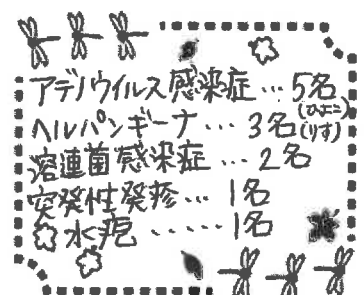 アデノウイルス感染症…5名
(ひよこ)
ヘルパンギーナ…3名(りす)
溶連菌感染症…2名
突発性発疹…1名
水疱……1名